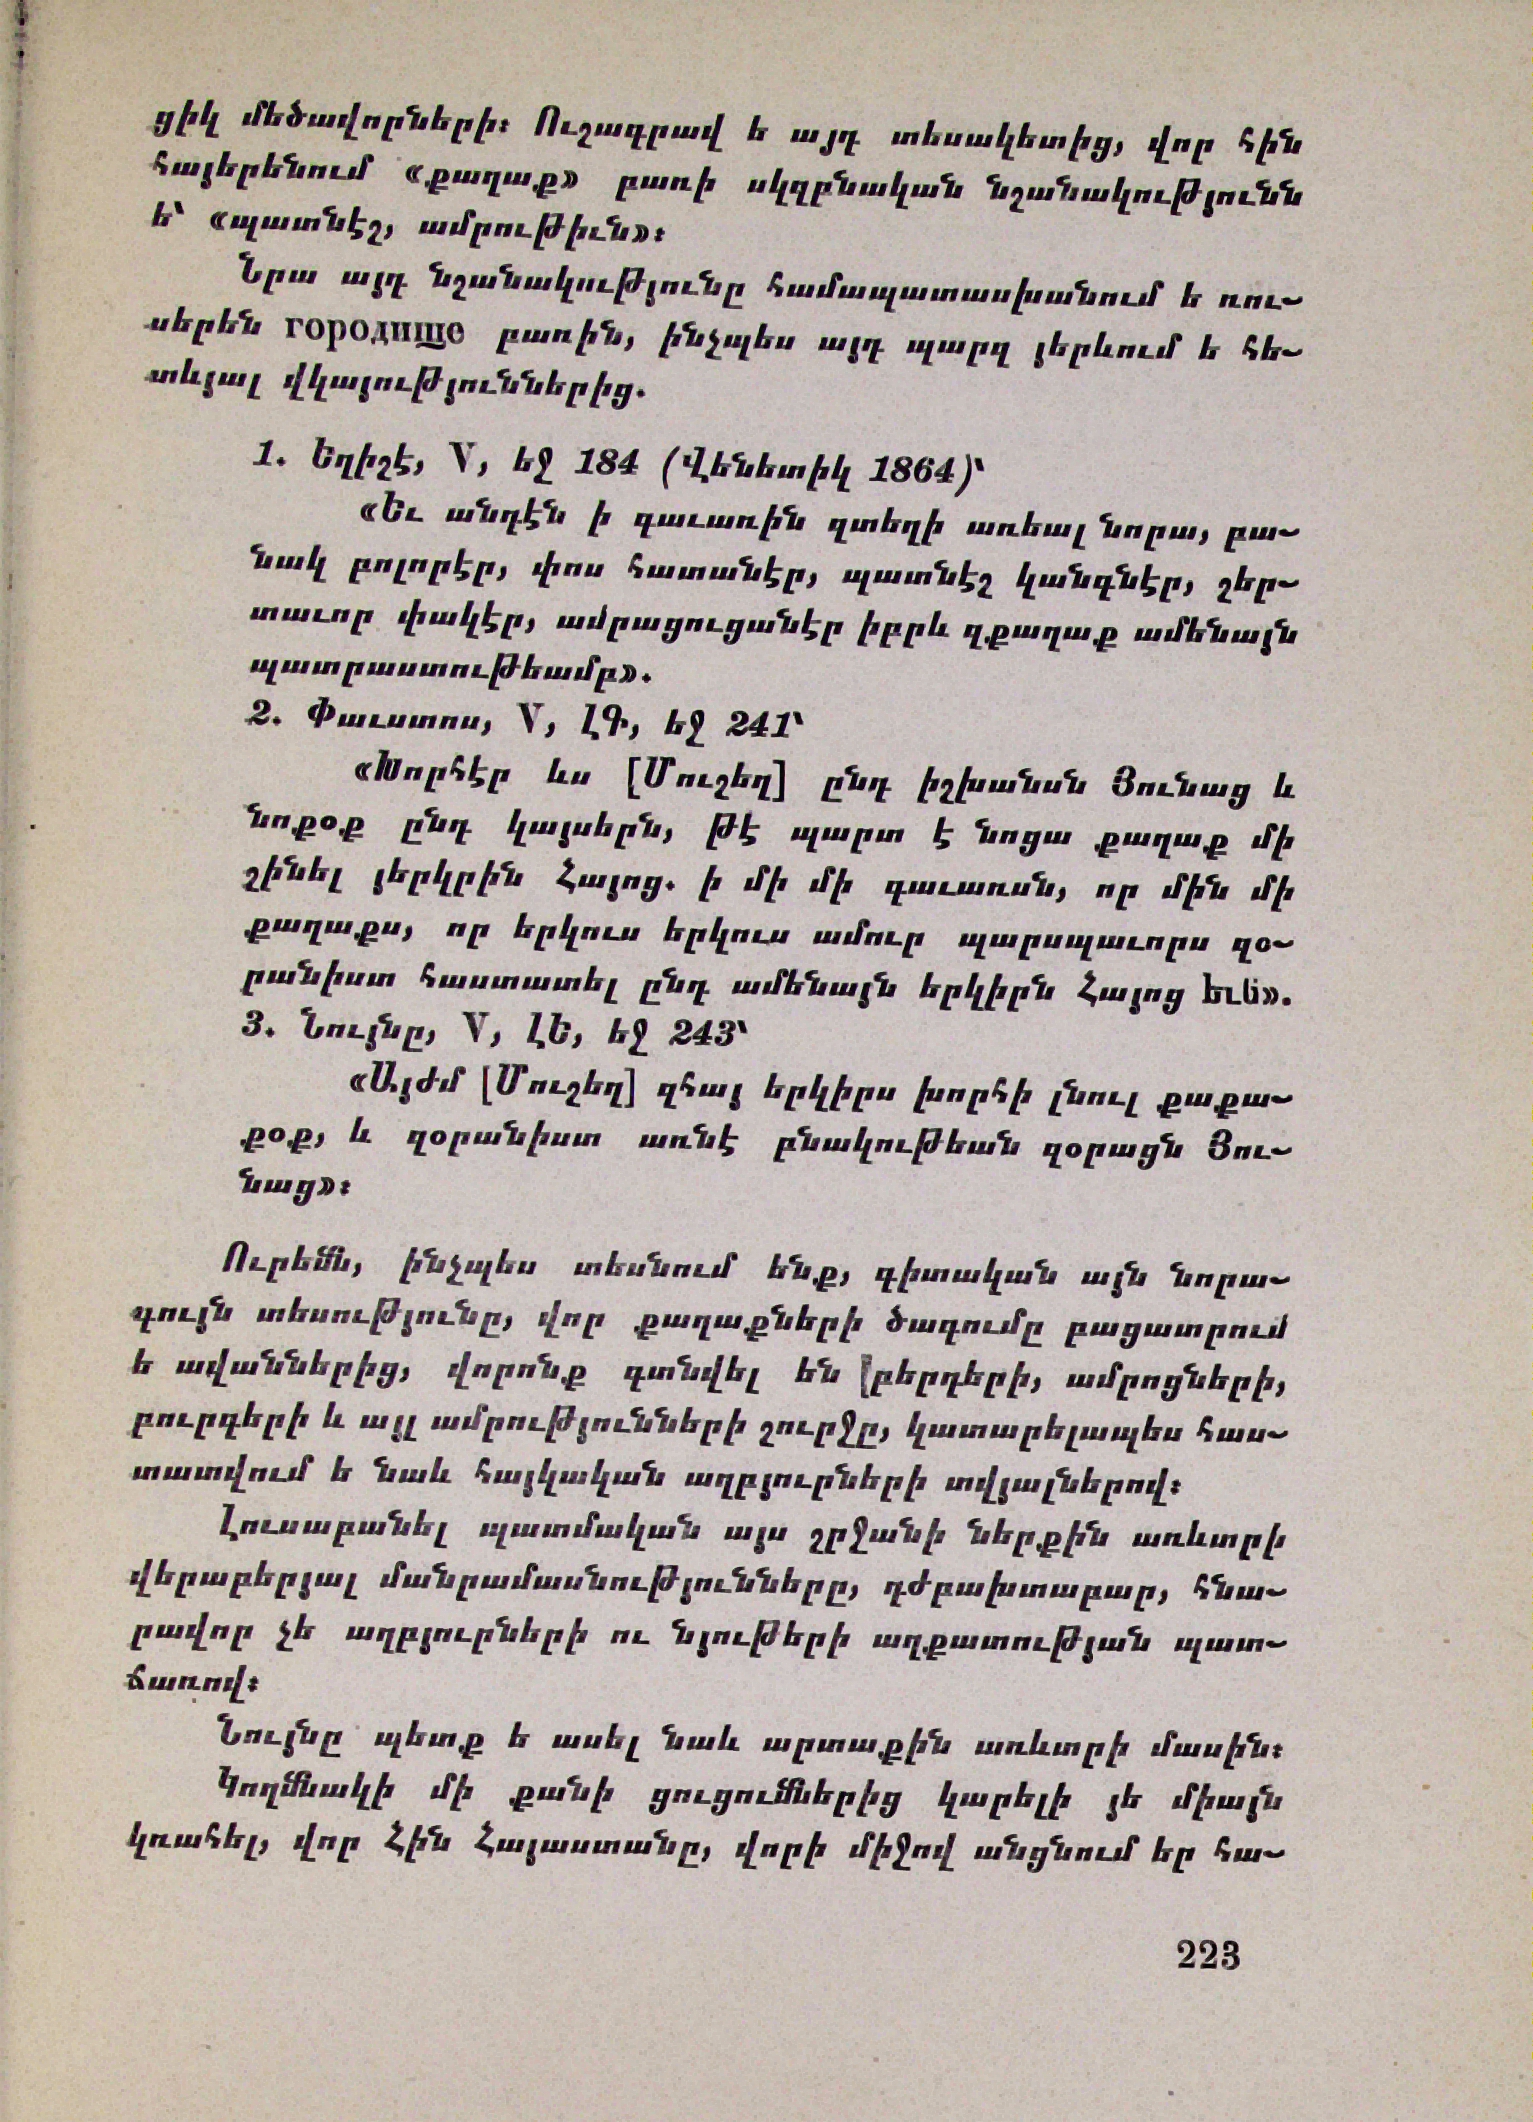 ցիկ մեծավորների։ Ուշագրավ ե այդ տեսակետից, վոր հին
հայերենում «քաղաք» բառի սկզբնական նշանակությունն
ե՝ «պատնէշ, ամրութիւն»։
Նրա այդ նշանակությունը համապատասխանում ե ռու-
սերեն городище բառին, ինչպես այդ պարզ յերևում ե հե-
տևյալ վկայություններից.
1. Եղիշէ, V, եջ 184 (Վենետիկ 1864)՝
«Եւ անդէն ի գաւառին զտեղի առեալ նորա, բա-
նակ բոլորէր, փոս հատանէր, պատնէշ կանգնէր, շեր-
տաւոր փակէր, ամրացուցանէր իբրև զքաղաք ամենայն
պատրաստութեամբ».
2. Փաւստոս, V, ԼԳ, եջ 241՝
«Խորհէր ևս [Մուշեղ] ընդ իշխանսն Յունաց և
նոքօք ընդ կայսերն, թէ պարտ է նոցա քաղաք մի
շինել յերկրին Հայոց. ի մի մի գաւառսն, որ մին մի
քաղաքս, որ երկուս երկուս ամուր պարսպաւորս զօ-
րանիստ հաստատել ընդ ամենայն երկիրն Հայոց եւն».
3. Նույնը, V, ԼԵ, եջ 243՝
«Այժմ [Մուշեղ] զհայ երկիրս խորհի լնուլ քաքա-
քօք, և զօրանիստ առնէ բնակութեան զօրացն Յու-
նաց»։
Ուրեմն, ինչպես տեսնում ենք, գիտական այն նորա-
գույն տեսությունը, վոր քաղաքների ծագումը բացատրում
ե ավաններից, վորոնք գտնվել են բերդերի, ամրոցների,
բուրգերի և այլ ամրությունների շուրջը, կատարելապես հաս-
տատվում ե նաև հայկական աղբյուրների տվյալներով։
Լուսաբանել պատմական այս շրջանի ներքին առևտրի
վերաբերյալ մանրամասնությունները, դժբախտաբար, հնա-
րավոր չե աղբյուրների ու նյութերի աղքատության պատ-
ճառով։
Նույնը պետք ե ասել նաև արտաքին առևտրի մասին։
Կողմնակի մի քանի ցուցումներից կարելի յե միայն
կռահել, վոր Հին Հայաստանը, վորի միջով անցնում եր հա-
223